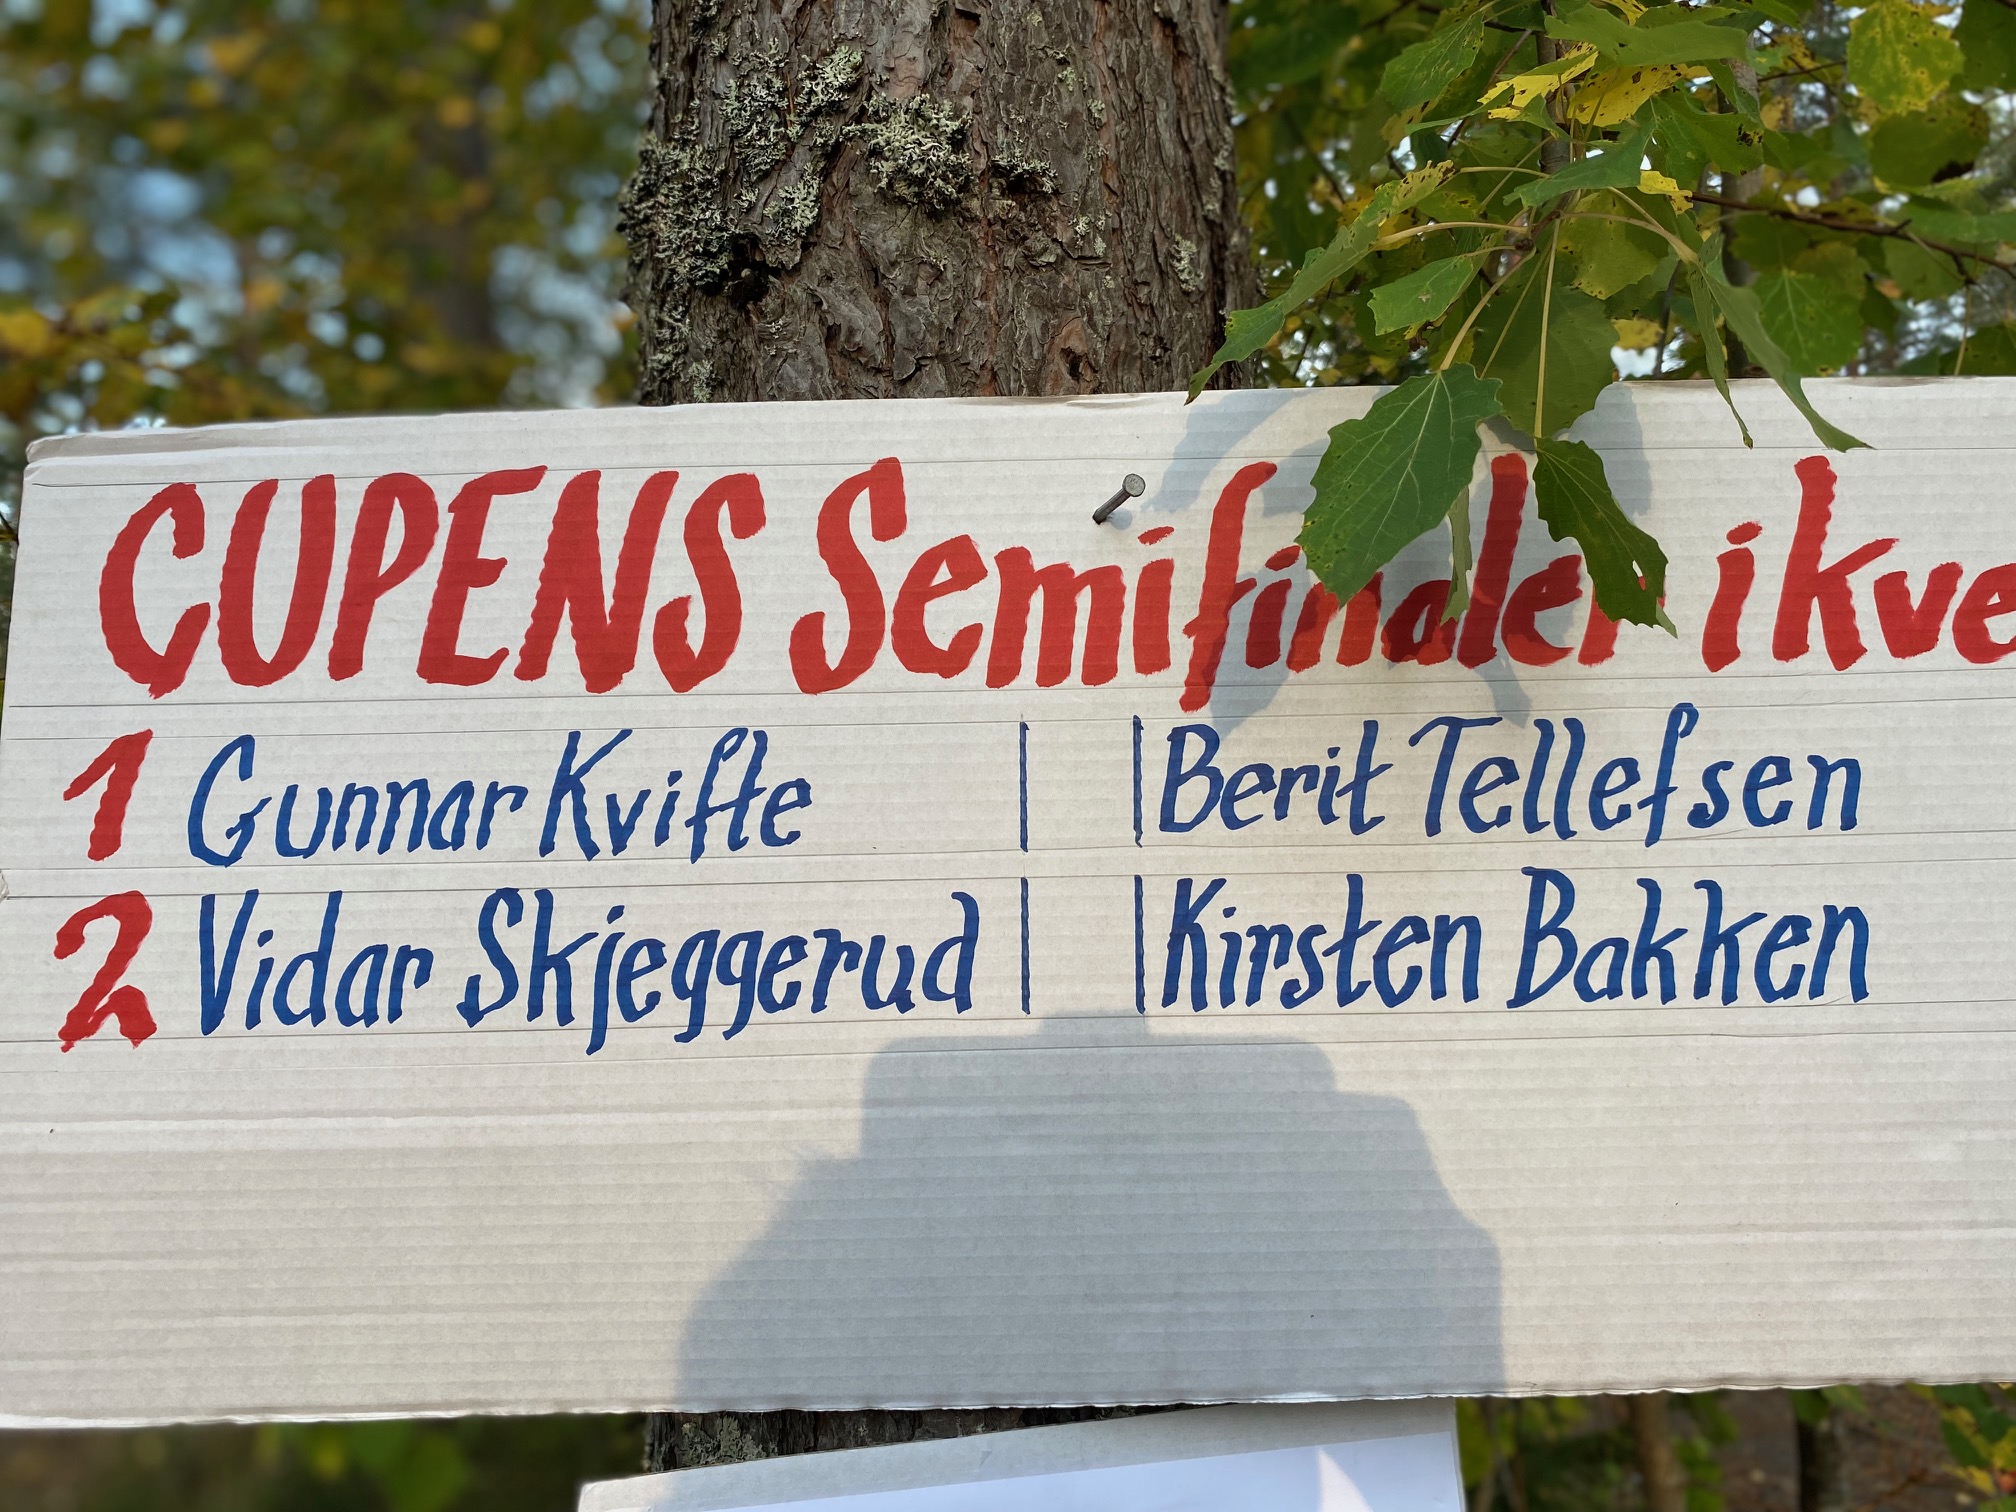 CUPENS Semifinaler i kve
1 Gunnar Kvifte | | Berit Tellefsen
2 Vidar Skjeggerud | | Kirsten Bakken